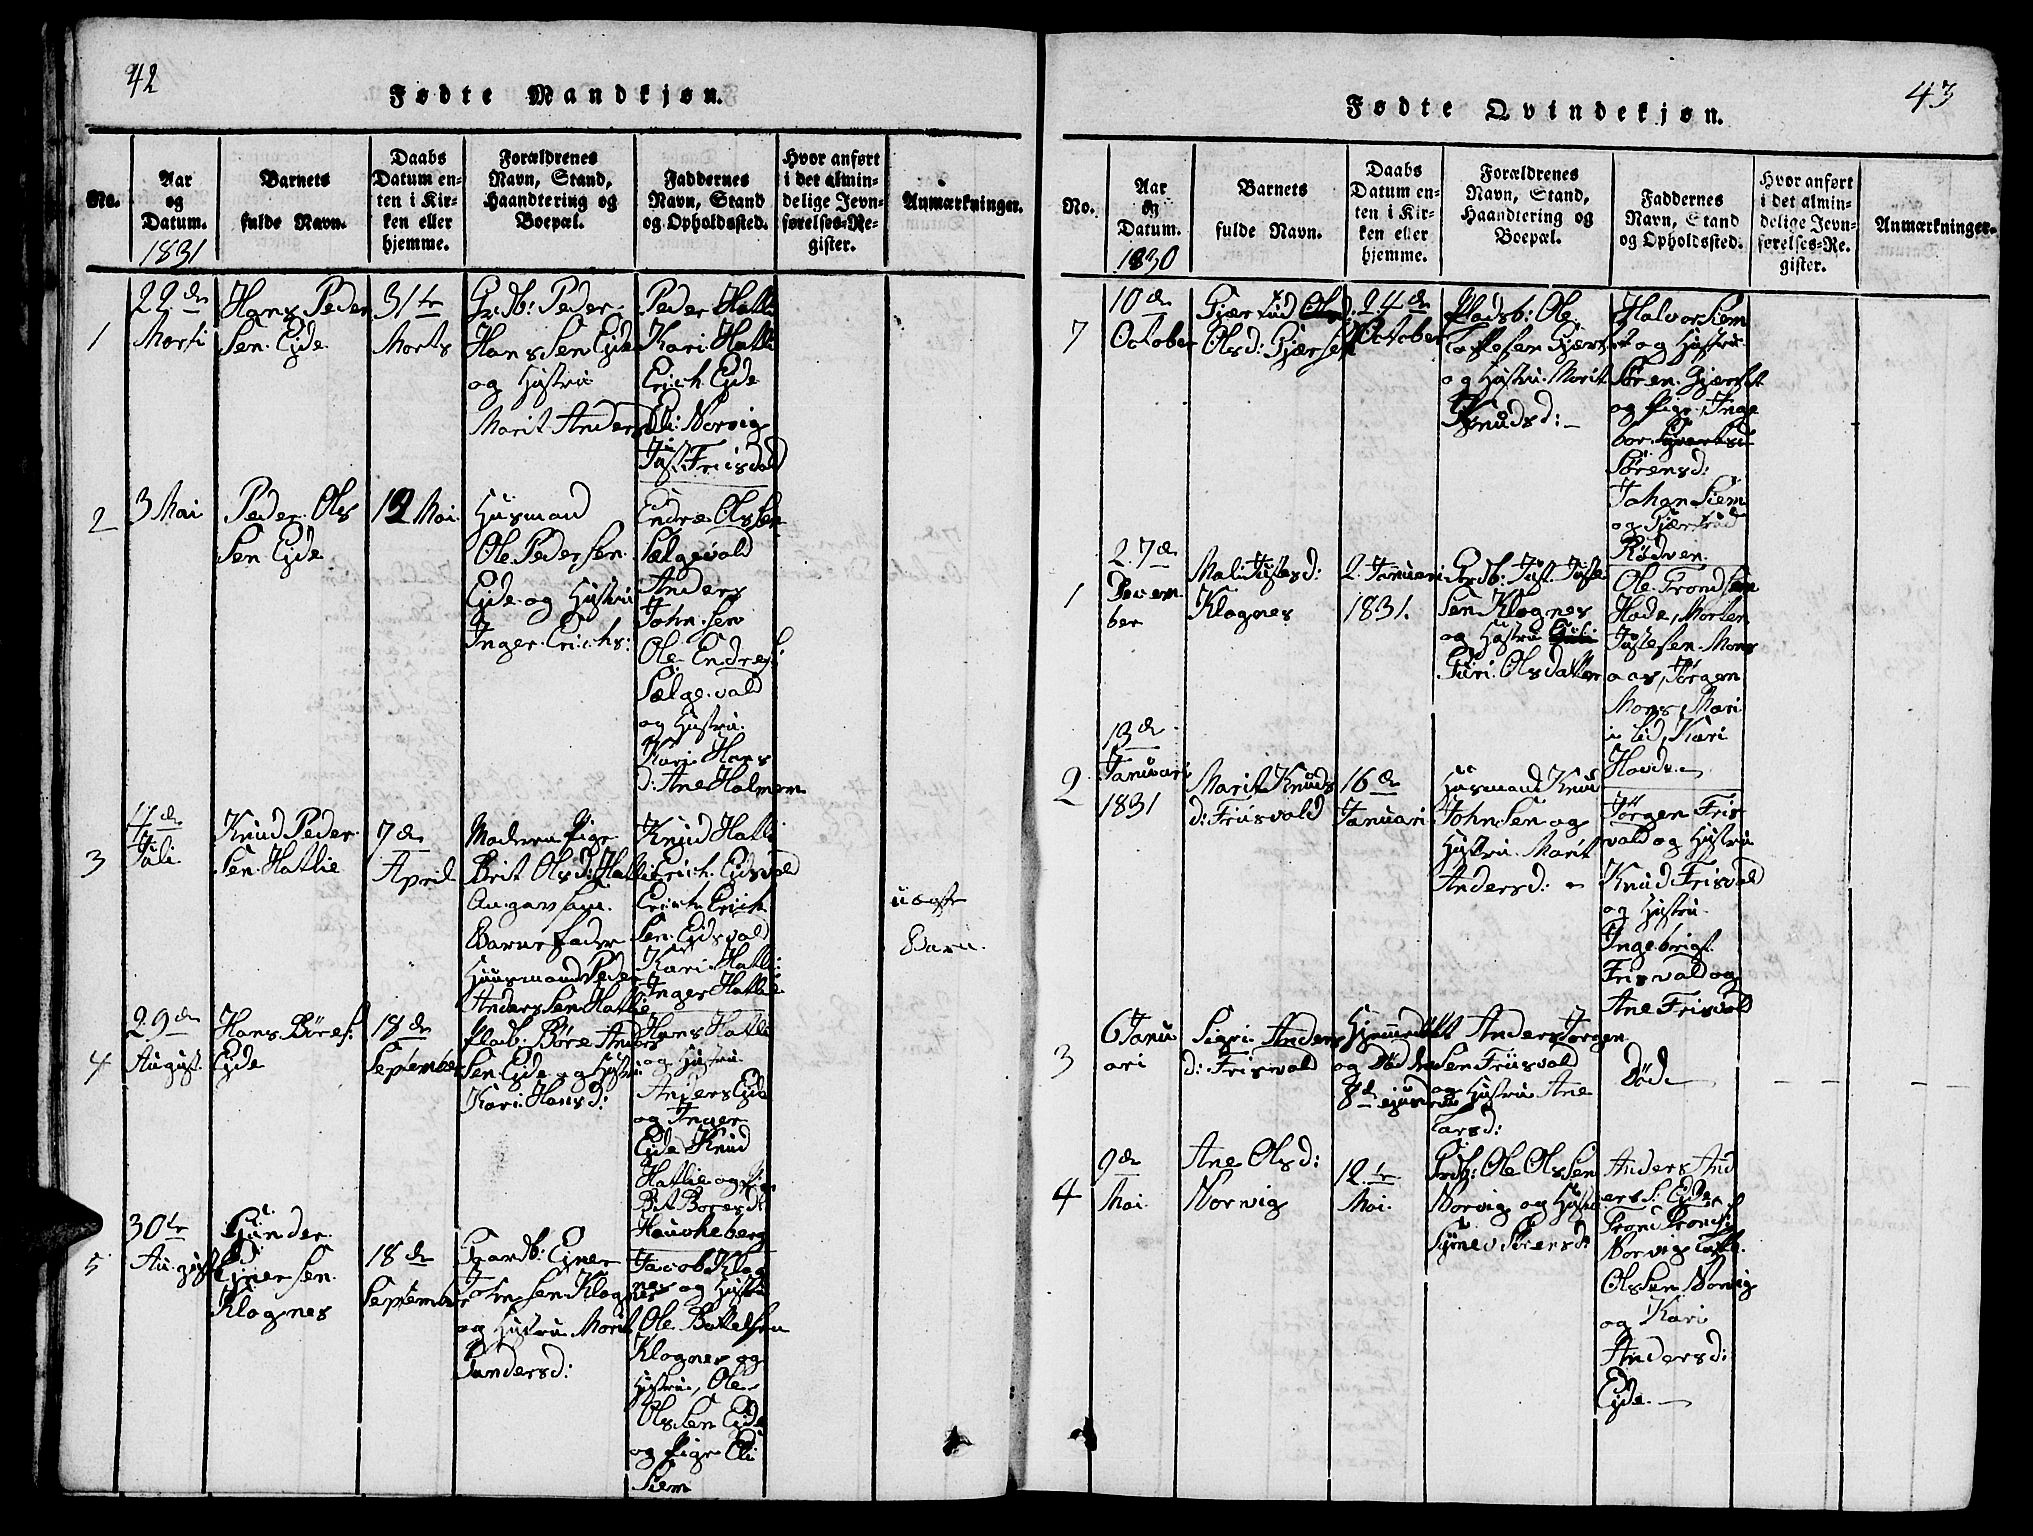 42
Fødte Mandkjøn.
No.
Aar
og
Datum.
1831
Barnets
fulde Navn.
Daabs
Datum en-
ten i Kir-
ken eller
hjemme.
Forældrenes
Navn, Stand,
Haandtering og
Boepæl.
Faddernes
Navn, Stand
og Opholdssted.
Hvor anført
i det almin-
delige Jevn-
førelses-Re-
gister.
Anmærkninger.
1
22de
Marti
Hans Peder
Sen Ejde
31te
Marts
Grdb: Peder
Hans Sen Ejde
og Hustru
Marit Andersd:
Peder Hatli
Kari Hatli
Erich Ejde
Eli Norvig
Just Frisvold
2
3 Mai
Peder Ols
Sen Ejde
12 Mai
Husmand
Ole Pedersen
Ejde og Hustru
Inger Erichs:
Endræ Olssen
Sælgevald
Anders
John Sen
Ole Endres:
Sælgevald
og Hustru
Kari Hans
d: Ane Holmem
3
4de
Juli
Knud Peder
Sen Hatlie
7de
April
Moderen Pige
Brit Olsd: Hatli
Barnefader
Huusmand Peder
Anders Sen Hatlie
Knud Hatli
Erich Eidsvold
Erich Erich
Sen Eidsvold
Kari Hatli
Inger Hatlie
uægte
Barn.
4
29de
August
Hans Böres:
Ejde
18de
September
Pladb: Böre Anders
Sen Ejde og Hustru
Kari Hansd:
Hans Hatli
og Hustru
Anders Ejde
og Inger
Ejde Knud
Hatlie og Pige
Brit Boresd:
Haukeberg
5
30te
August
Gunder
Ejner Sen
Klognes
18de
September
Gaardb: Ejner
John Sen Klognes
og Hustru Marit
Gundersd:
Jacob Klog
nes og Hustru
Ole Bottelsen
Klognes og
Hustru, Ole
Ols Sen Ejde
og Pige Eli
Siem
43
Fødte Qvindekjøn.
No.
Aar
og
Datum.
1830
Barnets
fulde Navn.
Daabs
Datum en-
ten i Kir-
ken eller
hjemme.
Forældrenes
Navn, Stand,
Haandtering og
Boepæl.
Faddernes
Navn, Stand
og Opholdssted.
Hvor anført
i det almin-
delige Jevn-
førelses-Re-
gister.
Anmærkninger.
7
10de
October
Gjærtrud Olsd
Olsd: Gjærset
24de
October
Pladsb: Ole
Gjærset
og Hustru Marit
Knudsd:
Halvor Siem
og Hustru
Sören Gjærset
og Pige Inge
bor
Sörensd:
Johan Siem
og Gjærtrud
Rödven
1
27de
Decem
ber
Mali Justesd:
Klognes
2 Januari
1831.
Grdb: Just Juste
Sen Klognes
og Hustru
Guri Olsdatter
Ole Trondsen
Hode, Morten
Justesen Mons
aas, Jörgen
Mons, Mari
i Lid, Kari
Hovde
2
13de
Januari
1831
Marit Knuds
d: Frisvold
16de
Januari
Husmand Knud
John Sen og
Hustru Marit
Andersd:
Jörgen Fris
vold og Hustru
Knud Frisvold
og Hustru
Ingebrigt
Frisvold og
Ane Frisvold
3
6 Janu
ari
Sigri Anders
d: Frisvold
Hjemmedøbt
og Död den
8de ejusdem
Anders Jörgen
Sen Friisvold
og Hustru Ane
Larsd:
Död
4
9de
Mai
Ane Olsd:
Norvig
12te
Mai
Grdb: Ole Ols Sen
Norvig og Hustru
Anders And
ers S: Ejde
Trond Tronds:
Norvig
Ols Sen Norvig
og Kari
Andersd:
Ejde.